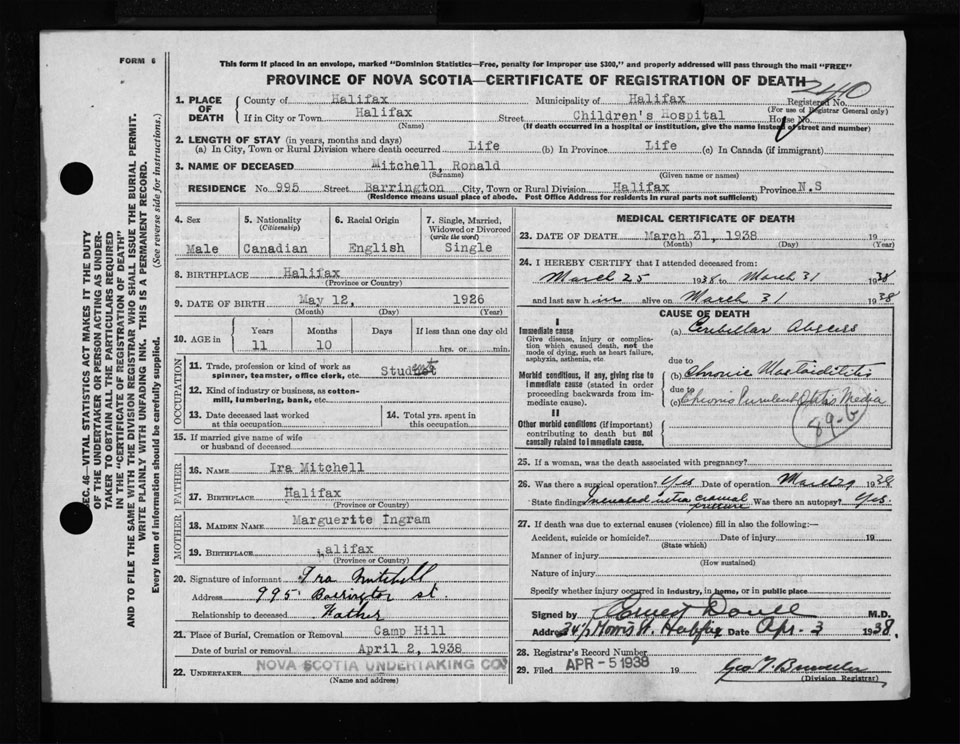 FORM 6
This form if placed in an envelope, marked "Dominion Statistics—Free, penalty for improper use $300," and properly addressed will pass through the mail "FREE"
PROVINCE OF NOVA SCOTIA—CERTIFICATE OF REGISTRATION OF DEATH
1. PLACE OF DEATH
County of Halifax Municipality of Halifax Registered No.
(For use of Registrar General only)
If in City or Town Halifax Street Children's Hospital House No.
(Name) (If death occurred in a hospital or institution, give the name instead of street and number)
2. LENGTH OF STAY (in years, months and days)
(a) In City, Town or Rural Division where death occurred Life (b) In Province Life (c) In Canada (if immigrant)
3. NAME OF DECEASED Mitchell, Ronald
(Surname) (Given name or names)
RESIDENCE No. 995 Street Barrington City, Town or Rural Division Halifax Province N.S
(Residence means usual place of abode. Post Office Address for residents in rural parts not sufficient)
4. Sex Male
5. Nationality (Citizenship) Canadian
6. Racial Origin English
7. Single, Married, Widowed or Divorced (write the word) Single
8. BIRTHPLACE Halifax
(Province or Country)
9. DATE OF BIRTH May 12, 1926
(Month) (Day) (Year)
10. AGE in Years 11 Months 10 Days If less than one day old hrs. or min.
OCCUPATION
11. Trade, profession or kind of work as spinner, teamster, office clerk, etc. Student
12. Kind of industry or business, as cotton-mill, lumbering, bank, etc.
13. Date deceased last worked at this occupation
14. Total yrs. spent in this occupation
15. If married give name of wife or husband of deceased
FATHER
16. NAME Ira Mitchell
17. BIRTHPLACE Halifax
(Province or Country)
MOTHER
18. MAIDEN NAME Marguerite Ingram
19. BIRTHPLACE Halifax
(Province or Country)
20. Signature of informant Ira Mitchell
Address 995 Barrington St.
Relationship to deceased Father
21. Place of Burial, Cremation or Removal Camp Hill
Date of burial or removal April 2, 1938
22. UNDERTAKER NOVA SCOTIA UNDERTAKING CO'Y
(Name and address)
MEDICAL CERTIFICATE OF DEATH
23. DATE OF DEATH March 31, 1938 19
(Month) (Day) (Year)
24. I HEREBY CERTIFY that I attended deceased from:
March 25 1938 to March 31 1938
and last saw him alive on March 31 1938
CAUSE OF DEATH
I
Immediate cause
Give disease, injury or complication which caused death, not the mode of dying, such as heart failure, asphyxia, asthenia, etc.
(a) Cerebellar Abscess
Morbid conditions, if any, giving rise to immediate cause (stated in order proceeding backwards from immediate cause).
due to
(b) Chronic Mastoiditis
due to
(c) Chronic Purulent Otitis Media
89-b
II
Other morbid conditions (if important) contributing to death but not causally related to immediate cause.
25. If a woman, was the death associated with pregnancy?
26. Was there a surgical operation? Yes Date of operation March 29 1938
State findings Increased intra cranial pressure Was there an autopsy? Yes.
27. If death was due to external causes (violence) fill in also the following:—
Accident, suicide or homicide? Date of injury 19
(State which)
Manner of injury
(How sustained)
Nature of injury
Specify whether injury occurred in industry, in home, or in public place
Signed by Ernest Doull M.D.
Address Morris St. Halifax Date Apr. 3 1938.
28. Registrar's Record Number
29. Filed APR - 5 1938 19
(Division Registrar)
SEC. 46—VITAL STATISTICS ACT MAKES IT THE DUTY
OF THE UNDERTAKER OR PERSON ACTING AS UNDER-
TAKER TO OBTAIN ALL THE PARTICULARS REQUIRED
IN THE "CERTIFICATE OF REGISTRATION OF DEATH"
AND TO FILE THE SAME WITH THE DIVISION REGISTRAR WHO SHALL ISSUE THE BURIAL PERMIT.
WRITE PLAINLY WITH UNFADING INK. THIS IS A PERMANENT RECORD.
Every item of information should be carefully supplied. (See reverse side for instructions.)